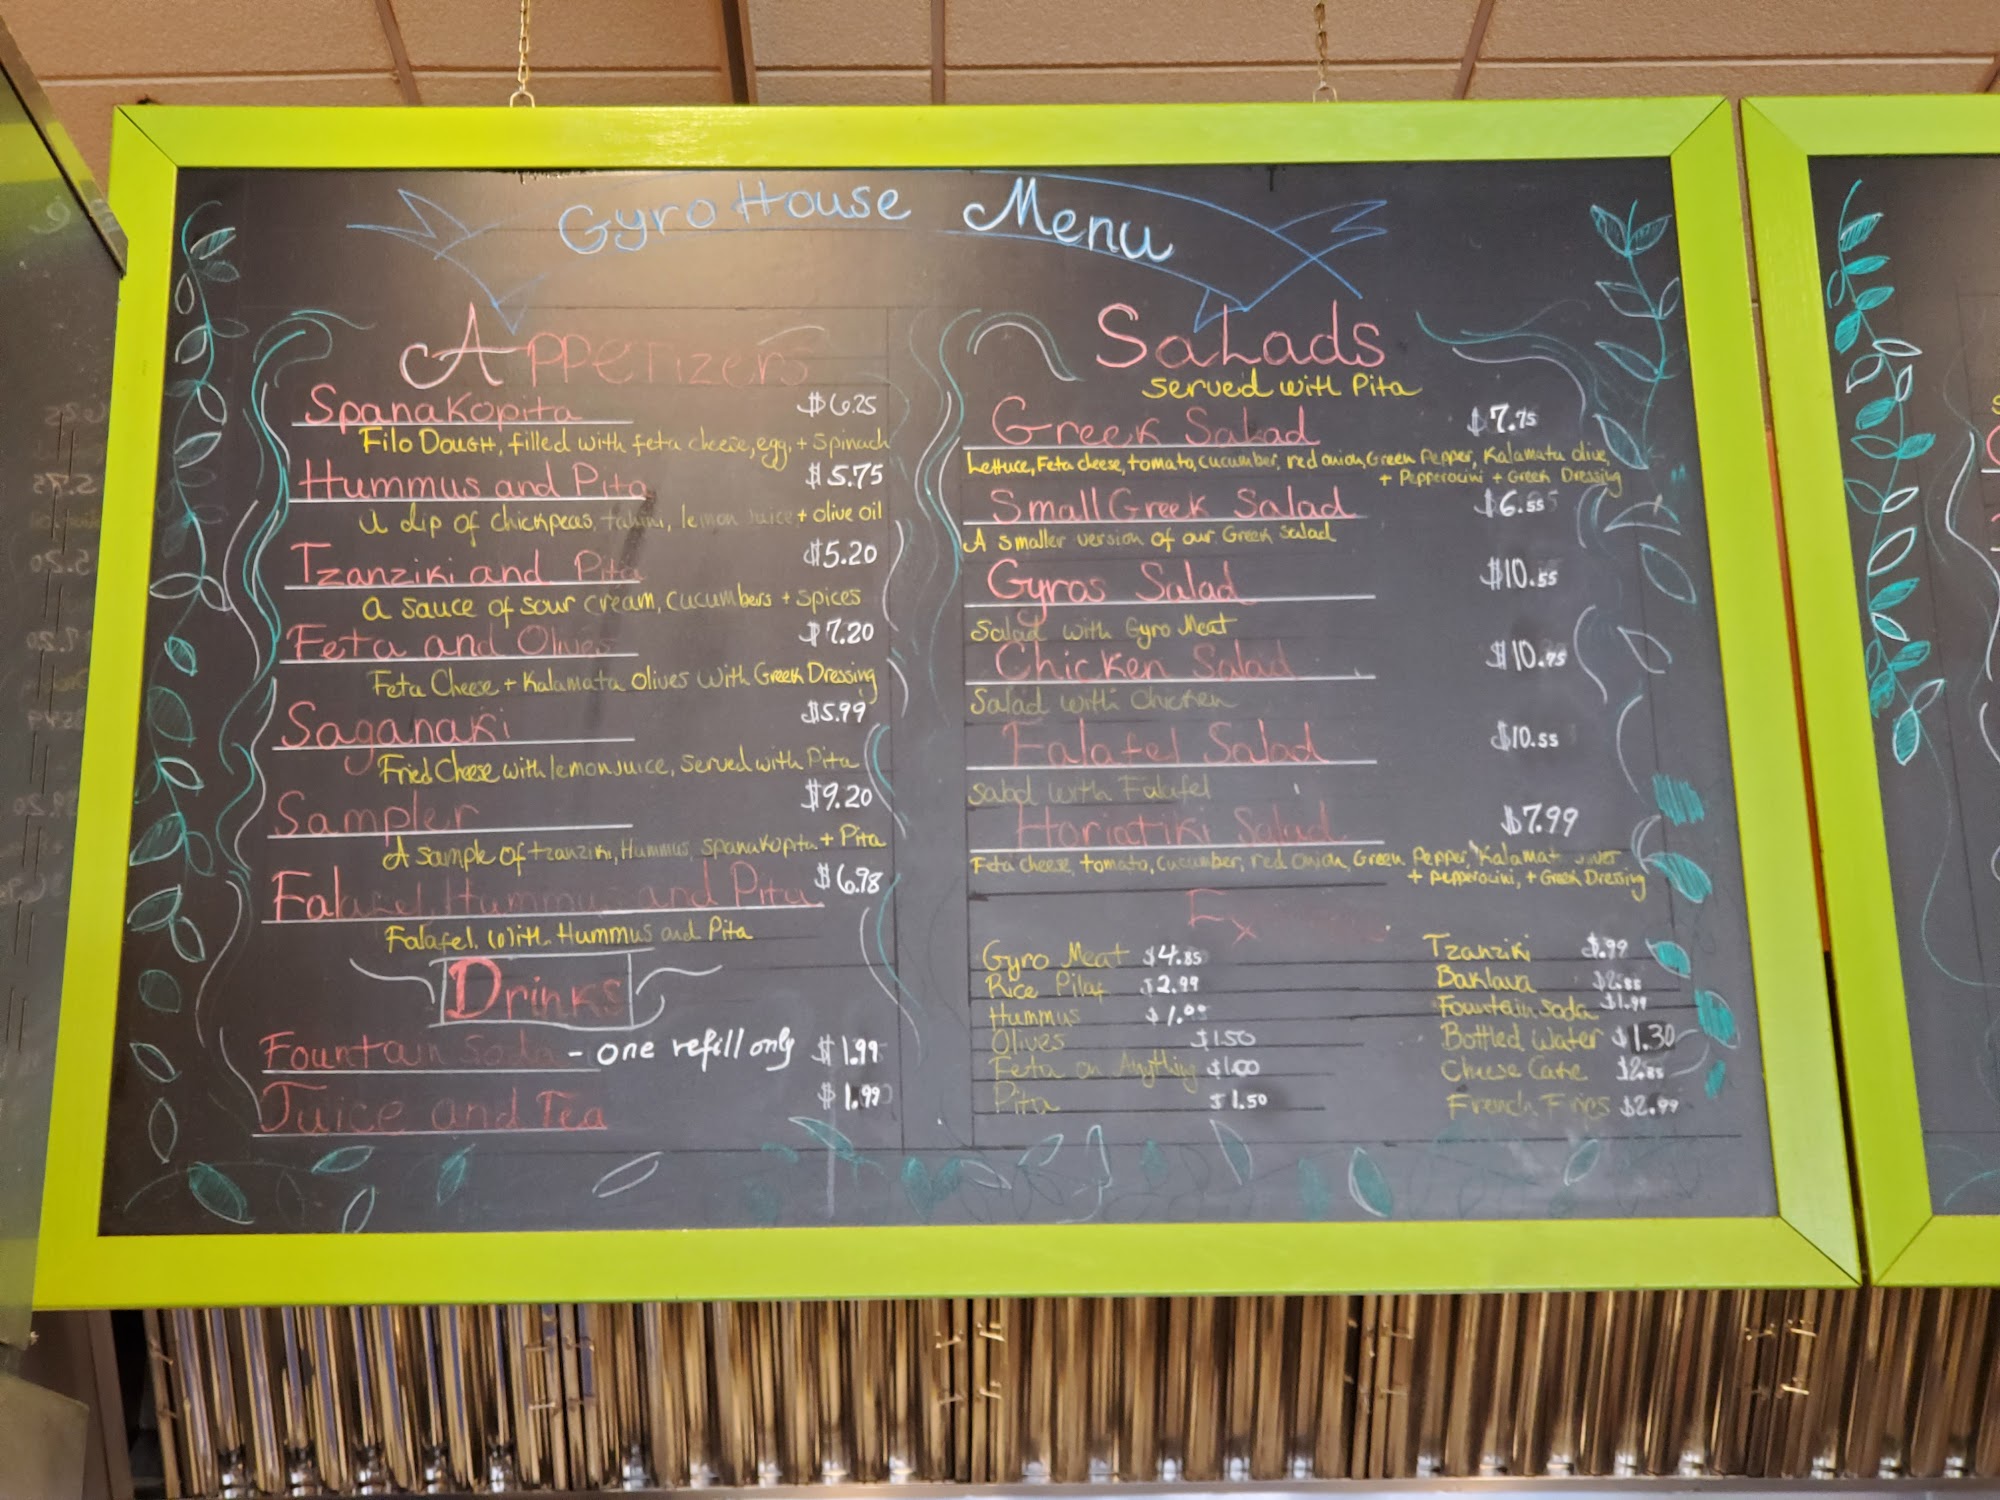 GyroHouse Menu
Appetizers
Spanakopita $6.25
Filo Dough, filled with feta cheese, egg, + Spinach
Hummus and Pita $5.75
a dip of chickpeas, tahini, lemon Juice + olive oil
Tzanziki and Pita $5.20
a sauce of sour cream, cucumbers + spices
Feta and Olives $7.20
Feta Cheese + Kalamata Olives With Greek Dressing
Saganaki $5.99
Fried Cheese with lemon Juice, served with Pita
Sampler $9.20
A sample of tzanziki, Hummus, spanakopita + Pita
Falafel, Hummus and Pita $6.98
Falafel With Hummus and Pita
Drinks
Fountain Soda - one refill only $1.99
Juice and Tea $1.99
Salads
served with Pita
Greek Salad $7.75
Lettuce, Feta cheese, tomato, cucumber, red onion, Green Pepper, Kalamata olive,
+ Pepperocini + Greek Dressing
Small Greek Salad $6.55
A smaller version of our Greek Salad
Gyros Salad $10.55
Salad with Gyro Meat
Chicken Salad $10.95
Salad with Chicken
Falafel Salad $10.55
Salad with Falafel
Horiatiki Salad $7.99
Feta cheese, tomato, cucumber, red onion, Green Pepper, Kalamat
+ pepperocini, + Greek Dressing
Gyro Meat $4.85
Rice Pilaf $2.99
Hummus
Olives $1.50
Feta on Anything $1.00
Pita $1.50
Tzanziki $.99
Baklava $2.85
Fountain Soda $1.99
Bottled Water $1.30
Cheese Cake $2.85
French Fries $2.99